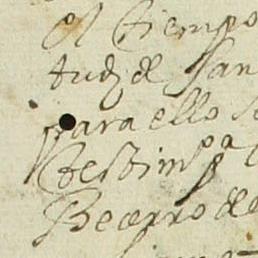 el tiempo
tud de San
para ello se
testimo a
Becerro de